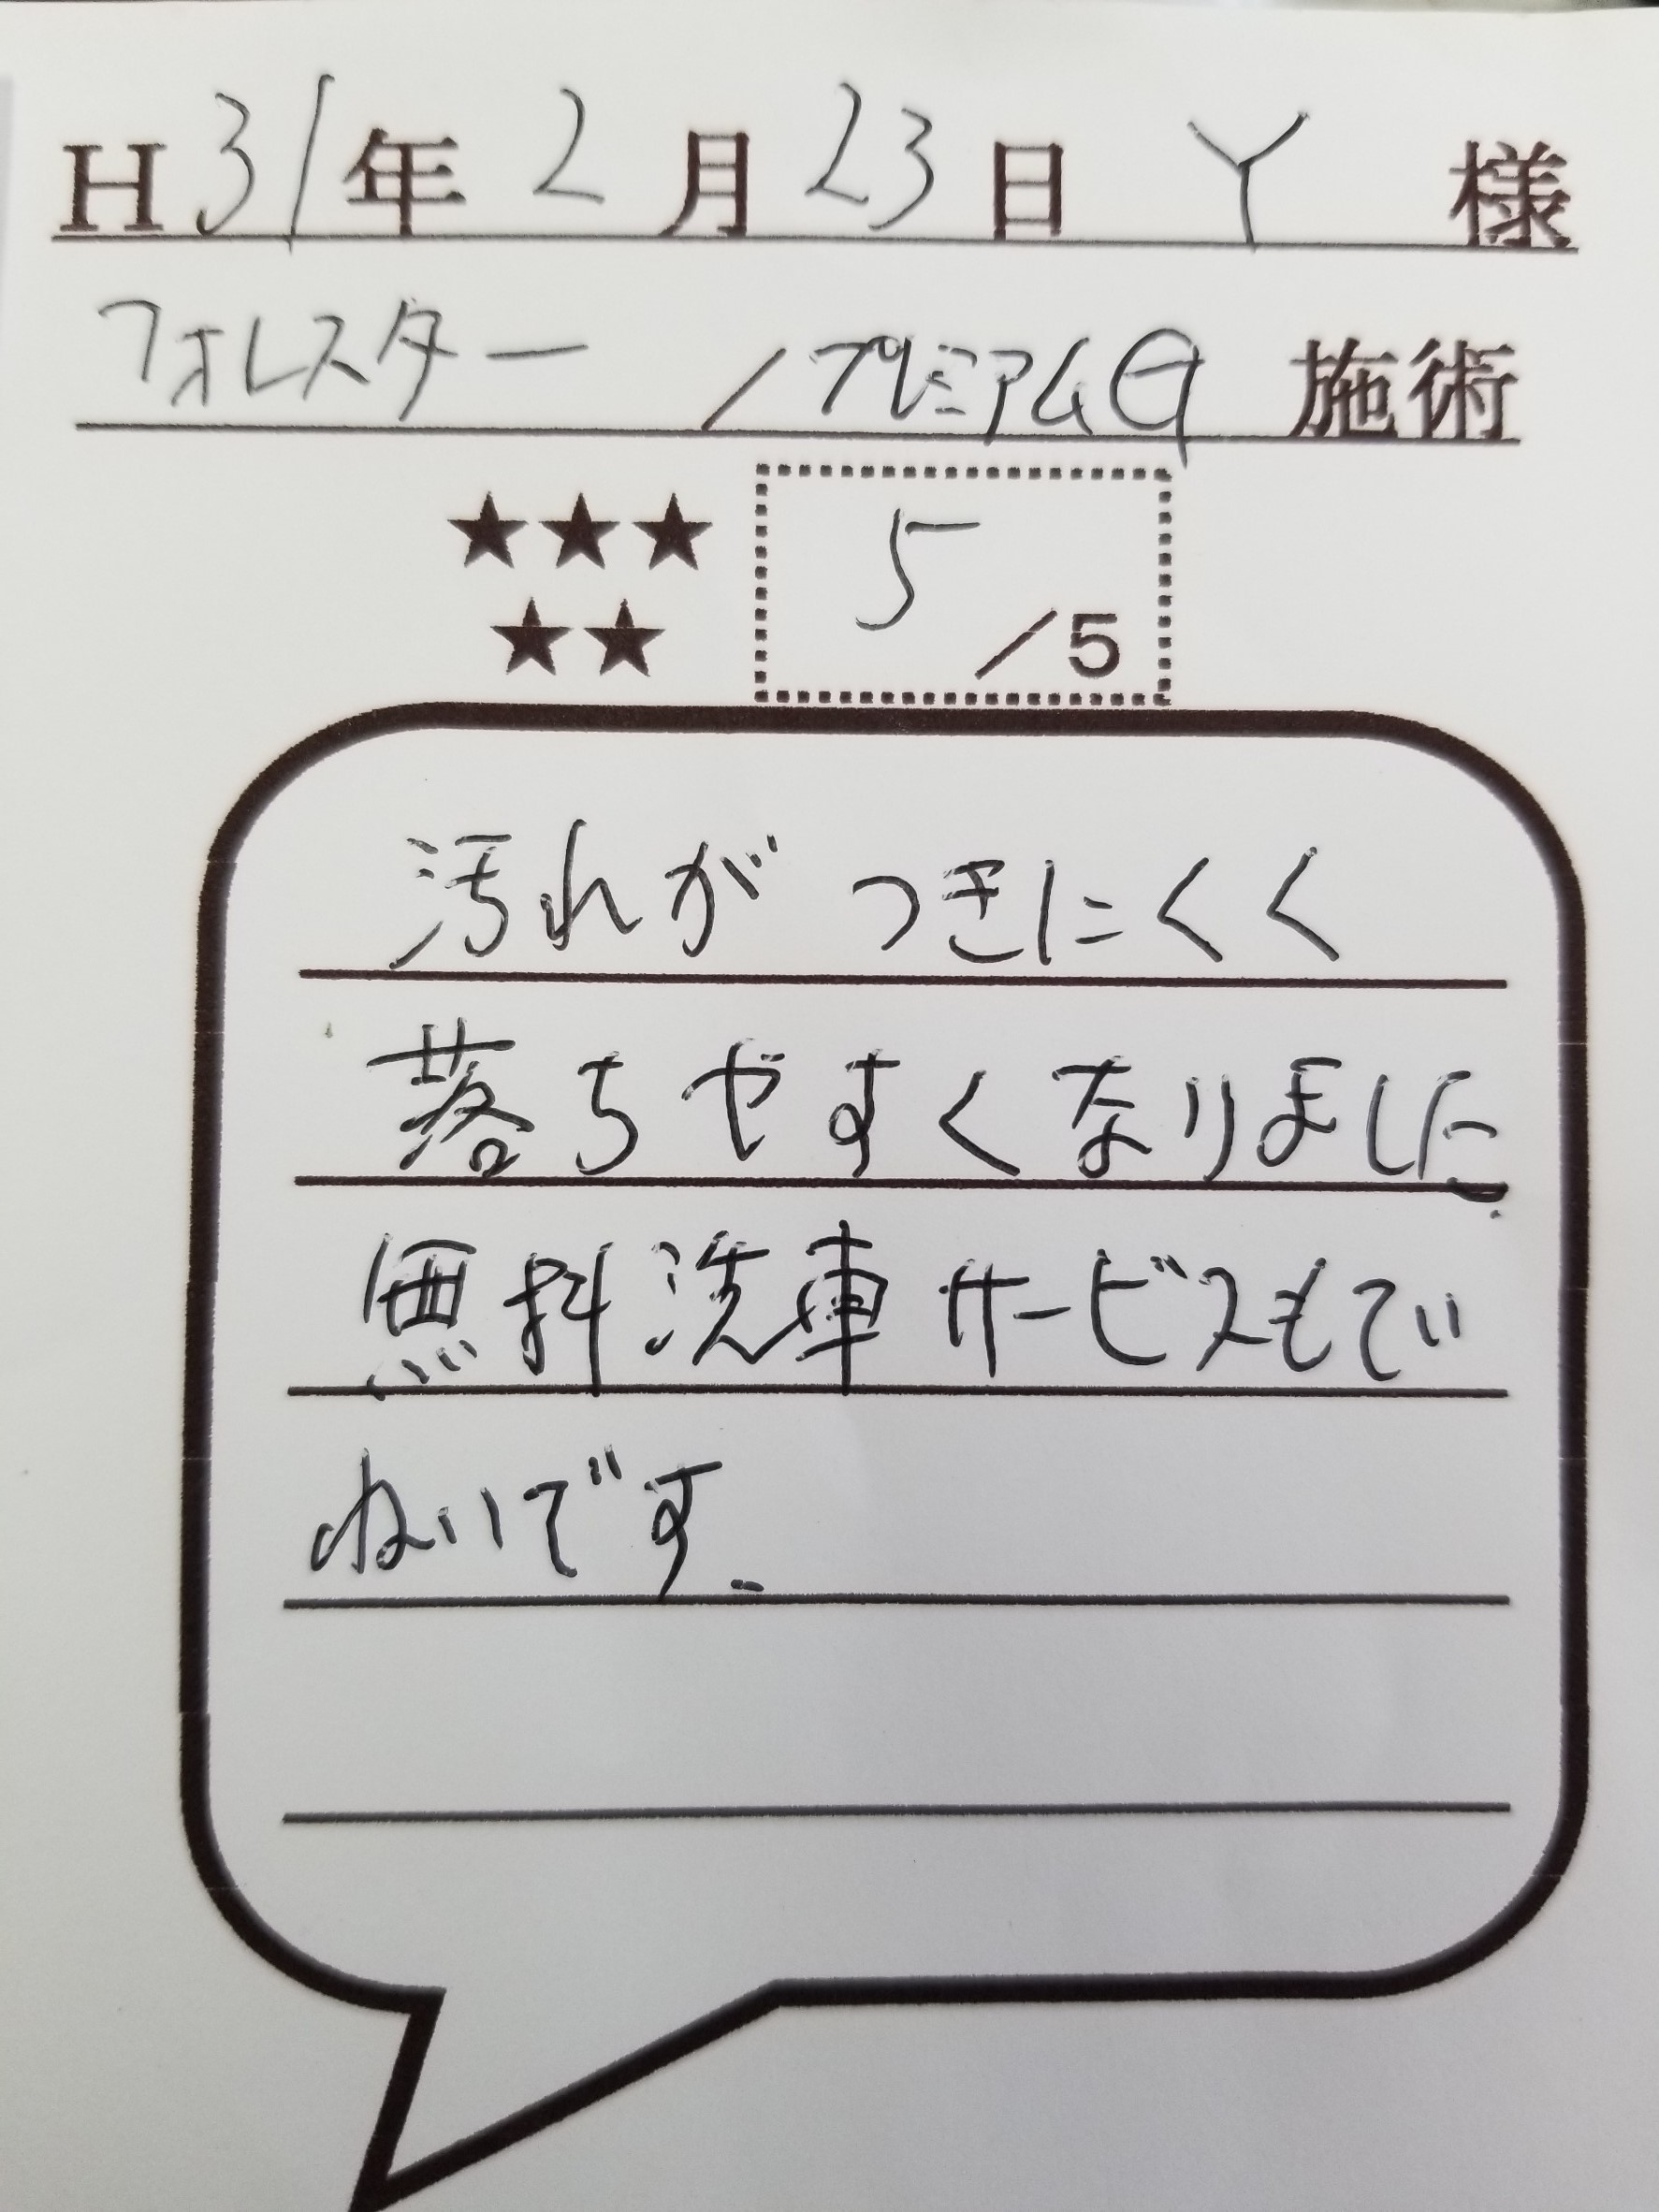 H31年2月23日 Y 様
フォレスター /プレミアムG 施術
★★★
5/5
★★
汚れがつきにくく
落ちやすくなりました。
無料洗車サービスもてい
ねいです。